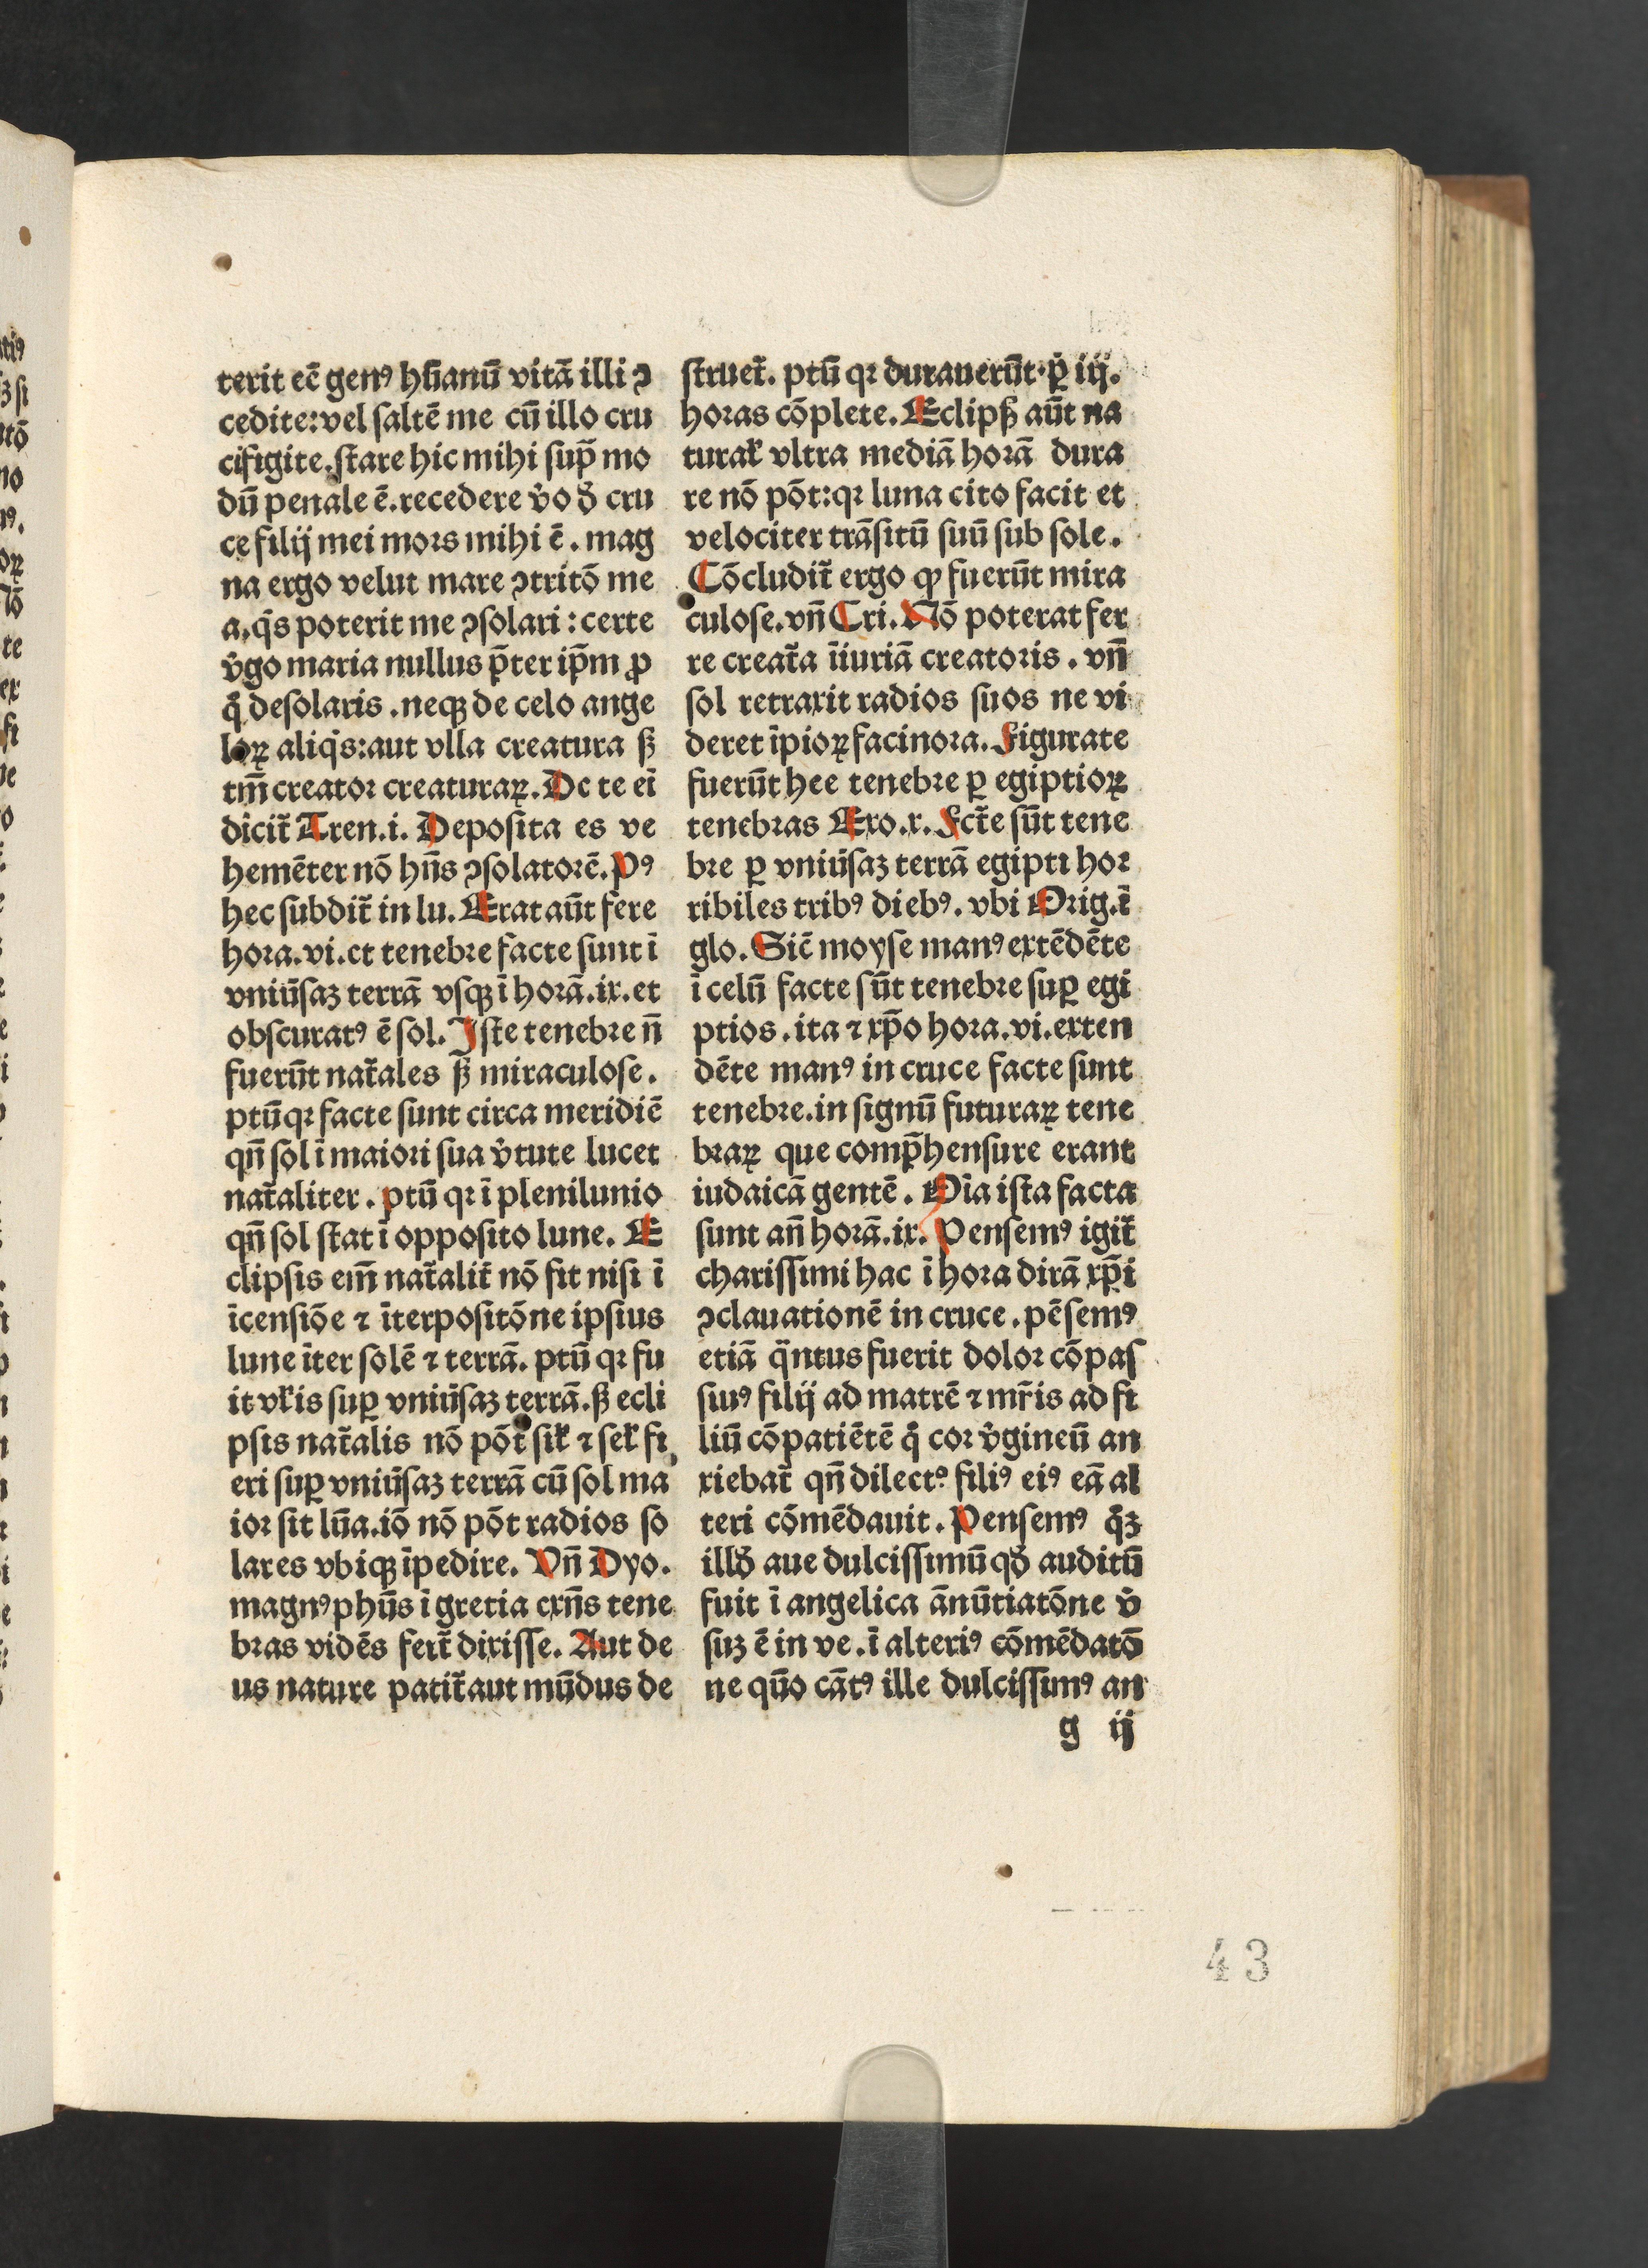 terit ec̄ genꝰ hūanū vitā illi ꝯ
cedite: vel saltē me cū illo cru
cifigite. stare hic mihi suꝑ mo
dū penale ē. recedere v̓o ꝺ̄ cru
ce filij mei mors mihi ē. mag
na ergo velut mare ꝯtritō me
a. q̓s poterit me ꝯsolari: certe
v̓go maria nullus p̄ter ip̄m ꝓ
q̊ desolaris. neqꝫ de celo ange
loꝝ aliq̓s: aut vlla creatura sꝫ
tm̄ creator creaturaꝝ. Dc te ei
dicit᷑ Tren. i. Deposita es ve
hemēter nō hn̄s ꝯsolatorē. Pꝰ
hec subdit᷑ in lu. Erat aūt fere
hora. vi. et tenebre facte sunt ī
vniūsaꝫ terrā vsqꝫ ī horā. ix. et
obscuratꝰ ē sol. Iste tenebre n̄
fuerūt nat᷑ales sꝫ miraculose.
ptū qꝛ facte sunt circa meridiē
qn̄ sol ī maiori sua v̓tute lucet
nat᷑aliter. ptū qꝛ ī plenilunio
qn̄ sol stat ī opposito lune. E
clipsis em̄ nat᷑alit᷑ nō fit nisi ī
īcensiōe ⁊ īterpositōne ipsius
lune īter solē ⁊ terrā. ptū qꝛ fu
it vl̓is suꝑ vniūsaꝫ terrā. sꝫ ecli
psis nat᷑alis nō pōt sil̓ ⁊ sel̓ fi
eri suꝑ vniūsaꝫ terrā cū sol ma
ior sit lūa. iō nō pōt radios so
lares vbiqꝫ īpedire. Vn̄ Dyo.
magnꝰ phūs ī gretia exn̄s tene
bras vidēs fert᷑ dixisse. Aut de
us nature patit᷑ aut mūdus de
struet᷑. ptū qꝛ durauerūt. ꝑ iij.
horas cōplete. Eclipsꝫ aūt na
tural̓ vltra mediā horā dura
re nō pōt: qꝛ luna cito facit et
velociter trāsitū suū sub sole.
Cōcludit᷑ ergo ꝙ fuerūt mira
culose. vn̄ Cri. Nō poterat fer
re creat᷑a īiuriā creatoris. vn̄
sol retraxit radios suos ne vi
deret īpioꝝ facinora. Figurate
fuerūt hee tenebre ꝑ egiptioꝝ
tenebras Exo. x. Fct᷑e sūt tene
bre ꝑ vniūsaꝫ terrā egipti hor
ribiles tribꝰ diebꝰ. vbi Orig. ī
glo. Sic̄ moyse manꝰ extēdēte
ī celū facte sūt tenebre suꝑ egi
ptios. ita ⁊ xp̄o hora. vi. exten
dēte manꝰ in cruce facte sunt
tenebre. in signū futuraꝝ tene
braꝝ que comp̄hensure erant
iudaicā gentē. Oīa ista facta
sunt an̄ horā. ix. Pensemꝰ igit᷑
charissimi hac ī hora dirā xp̄i
ꝯclauationē in cruce. pēsemꝰ
etiā q̈ntus fuerit dolor cōpas
siuꝰ filij ad matrē ⁊ mr̄is ad fi
liū cōpatiētē q̊ cor v̓gineū an
xiebat᷑ qn̄ dilectꝰ filiꝰ eiꝰ eā al
teri cōmēdauit. Pensemꝰ q̊ꝫ
illꝺ̄ aue dulcissimū qꝺ̄ auditū
fuit ī angelica ānūtiatōne v̓
suꝫ ē in ve. ī alteriꝰ cōmēdatō
ne quō cātꝰ ille dulcissimꝰ an
g ij
43